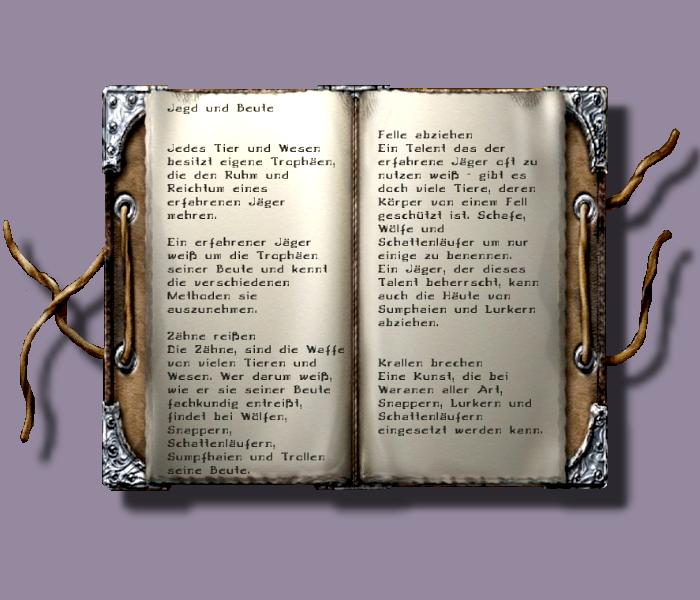 Jagd und Beute
Jedes Tier und Wesen
besitzt eigene Trophäen,
die den Ruhm und
Reichtum eines
erfahrenen Jäger
mehren.
Ein erfahrener Jäger
weiß um die Trophäen
seiner Beute und kennt
die verschiedenen
Methoden sie
auszunehmen.
Zähne reißen
Die Zähne, sind die Waffe
von vielen Tieren und
Wesen. Wer darum weiß,
wie er sie seiner Beute
fachkundig entreißt,
findet bei Wölfen,
Snappern,
Schattenläufern,
Sumpfhaien und Trollen
seine Beute.
Felle abziehen
Ein Talent das der
erfahrene Jäger oft zu
nutzen weiß - gibt es
doch viele Tiere, deren
Körper von einem Fell
geschützt ist. Schafe,
Wölfe und
Schattenläufer um nur
einige zu benennen.
Ein Jäger, der dieses
Talent beherrscht, kann
auch die Häute von
Sumpfhaien und Lurkern
abziehen.
Krallen brechen
Eine Kunst, die bei
Waranen aller Art,
Snappern, Lurkern und
Schattenläufern
eingesetzt werden kann.